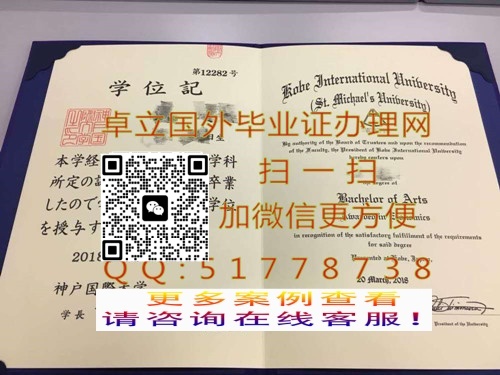 第12282号
学位記
本学経
学科
所定の
卒業
したので
学位
を授与す
2018
神戸国際大学
学長
Kobe International University
(St. Michael's University)
By authority of the Board of Trustees and upon the recommendation
of the Faculty, the President of Kobe International University
hereby confers upon
the degree of
Bachelor of Arts
Awarded in Economics
in recognition of the satisfactory fulfillment of the requirements
for said degree
Presented at Kobe, Japan,
20 March, 2018
President of the University
卓立国外毕业证办理网
扫一扫
加微信更方便
QQ:51778738
更多案例查看
请咨询在线客服！